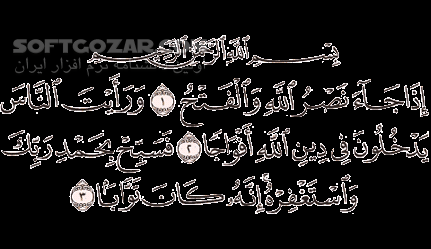 SOFTGOZAR.COM
اولین دانشنامه نرم افزار ایران
بِسْمِ ٱللَّهِ ٱلرَّحْمَٰنِ ٱلرَّحِيمِ
إِذَا جَآءَ نَصْرُ ٱللَّهِ وَٱلْفَتْحُ ١ وَرَأَيْتَ ٱلنَّاسَ
يَدْخُلُونَ فِي دِينِ ٱللَّهِ أَفْوَاجًا ٢ فَسَبِّحْ بِحَمْدِ رَبِّكَ
وَٱسْتَغْفِرْهُ إِنَّهُۥ كَانَ تَوَّابًۢا ٣